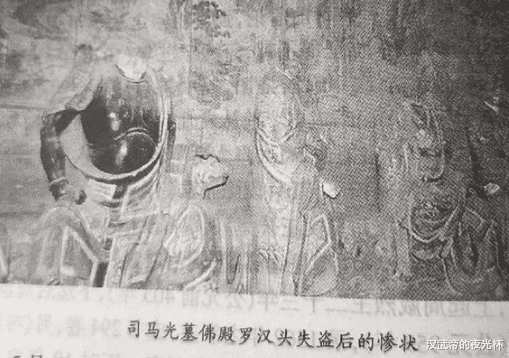 司马光墓佛殿罗汉头失盗后的惨状
汉武帝的夜光杯